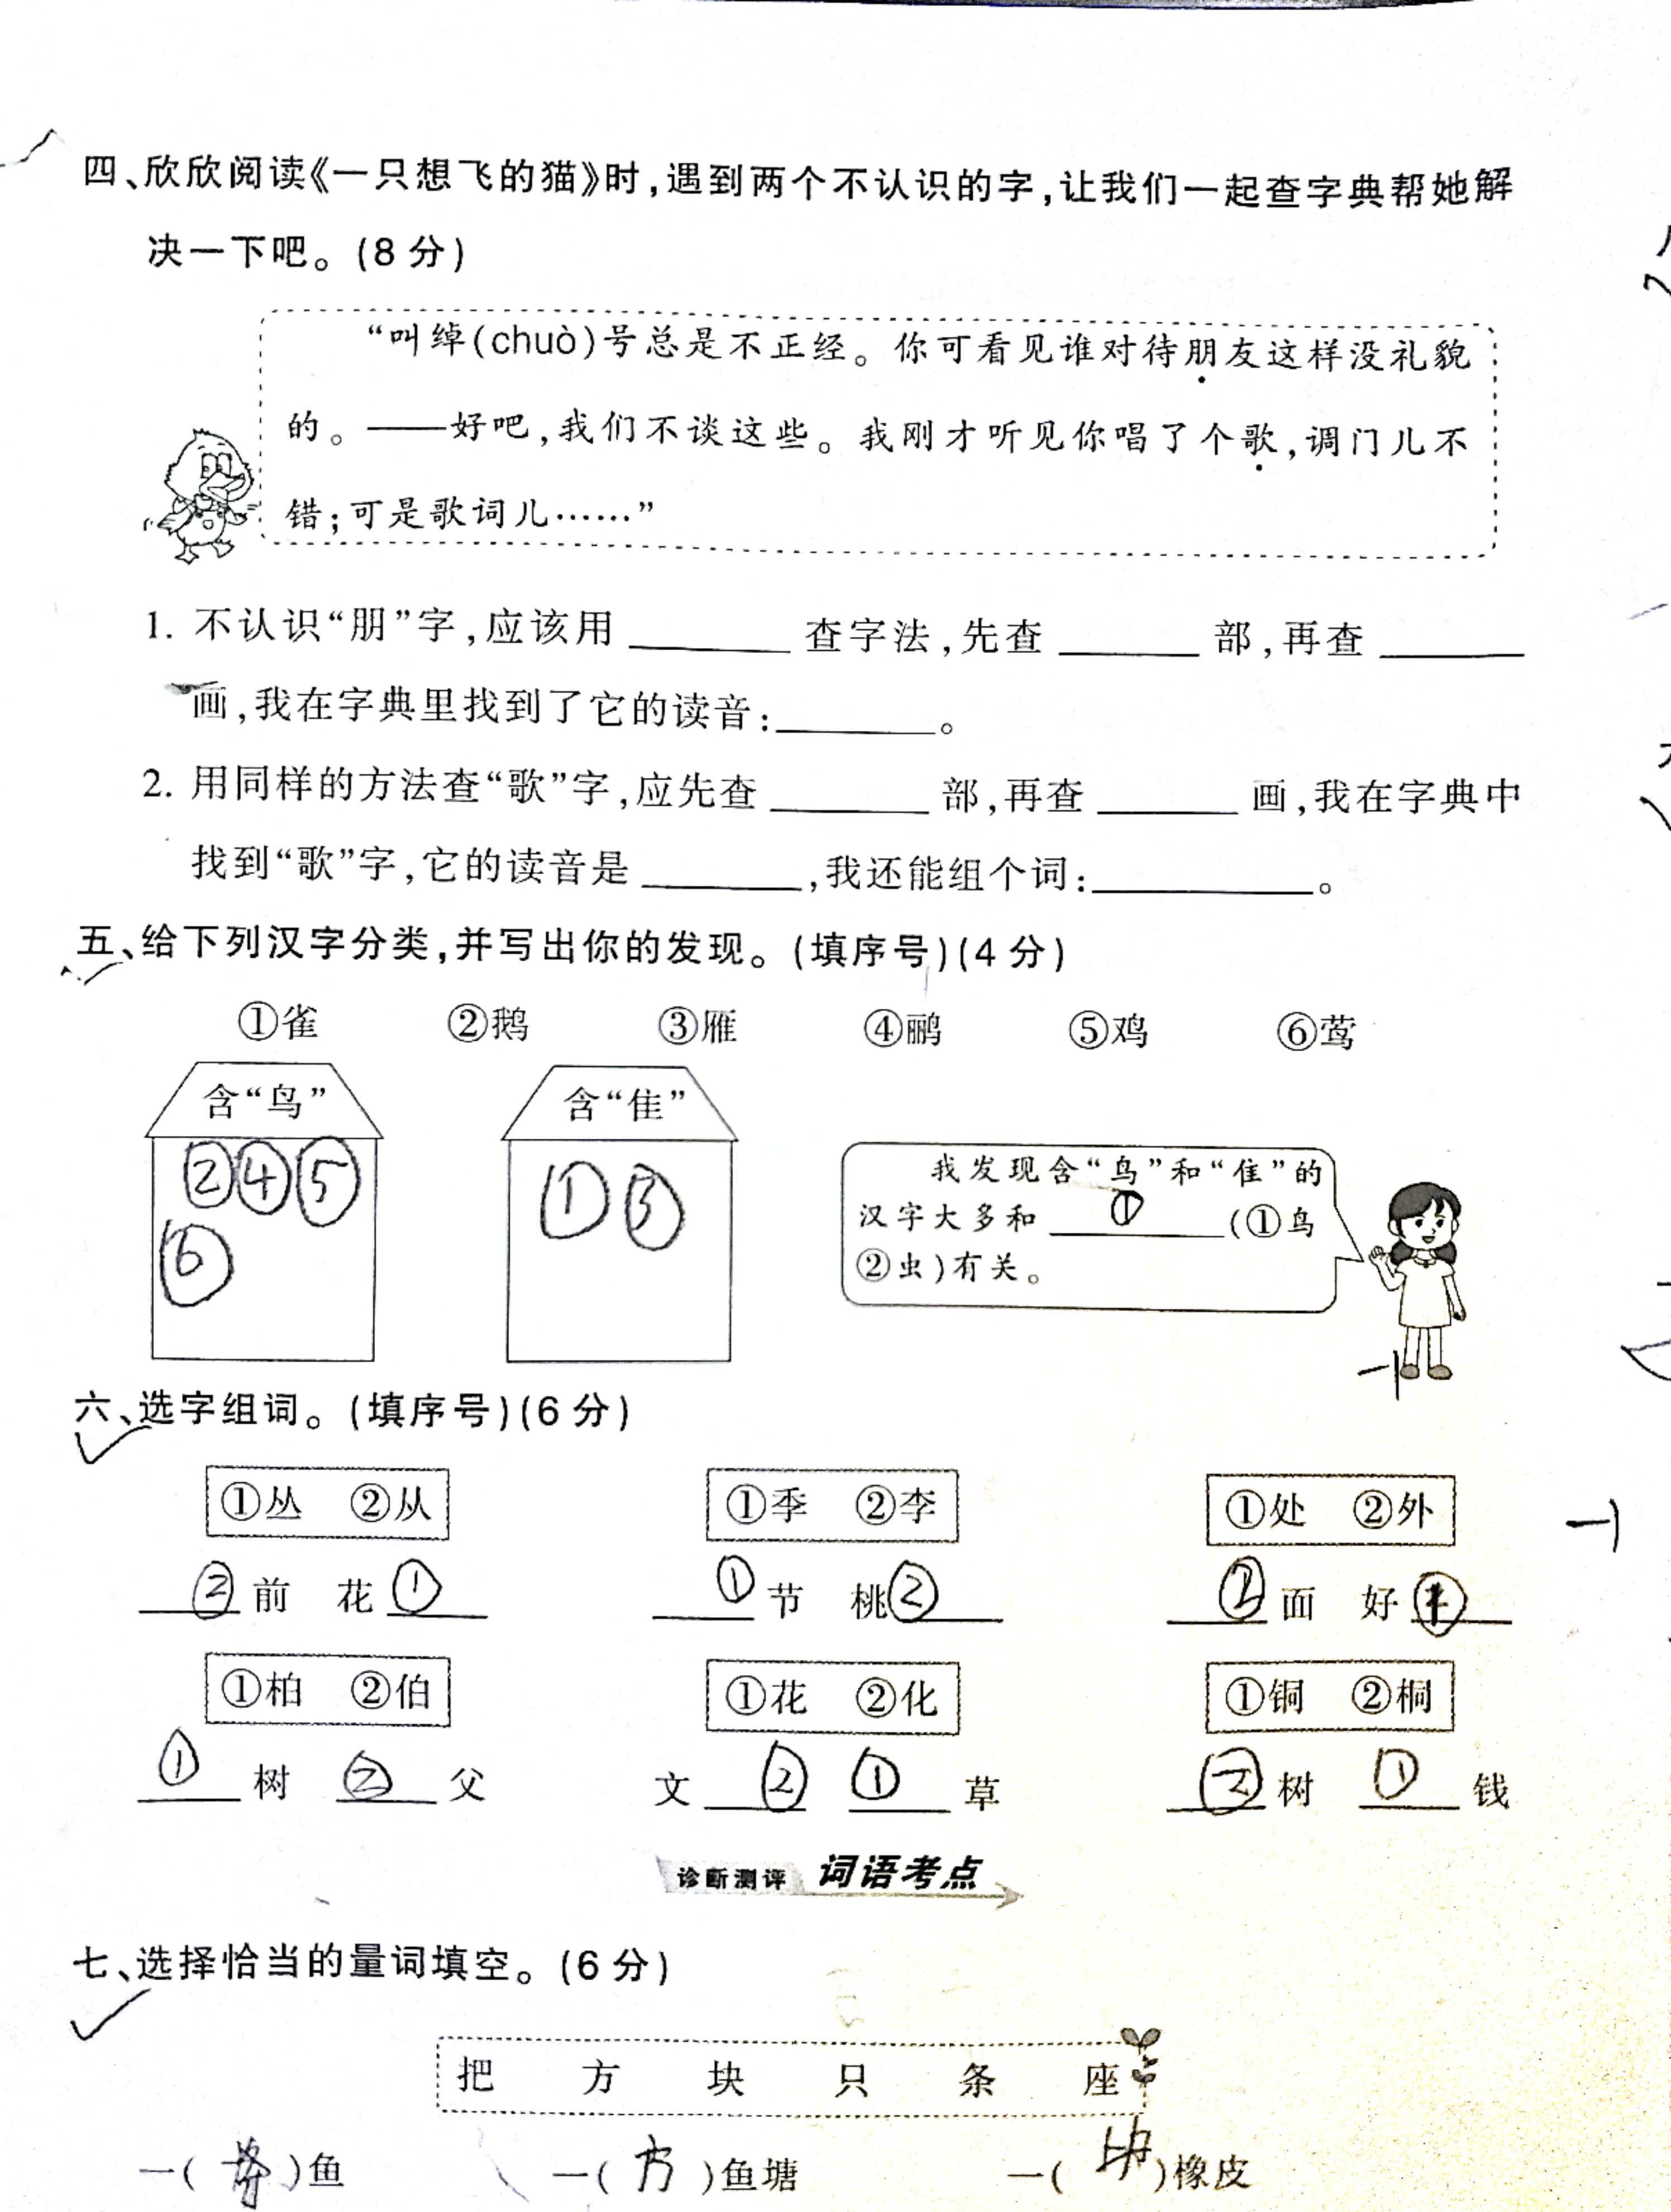 四、欣欣阅读《一只想飞的猫》时,遇到两个不认识的字,让我们一起查字典帮她解
决一下吧。(8 分)
“叫绰(chuò)号总是不正经。你可看见谁对待朋友这样没礼貌
的。——好吧,我们不谈这些。我刚才听见你唱了个歌,调门儿不
错;可是歌词儿……”
1. 不认识“朋”字,应该用______查字法,先查______部,再查______
画,我在字典里找到了它的读音:______。
2. 用同样的方法查“歌”字,应先查______部,再查______画,我在字典中
找到“歌”字,它的读音是______,我还能组个词:______。
五、给下列汉字分类,并写出你的发现。(填序号)(4 分)
①雀 ②鹅 ③雁 ④鹂 ⑤鸡 ⑥莺
含“鸟” 含“隹”
②④⑤ ①③
⑥
我发现含“鸟”和“隹”的
汉字大多和 ① (①鸟
②虫)有关。
-1
六、选字组词。(填序号)(6 分)
①丛 ②从 ①季 ②李 ①处 ②外
②前 花① ①节 桃② ②面 好①
-1
①柏 ②伯 ①花 ②化 ①铜 ②桐
①树 ②父 文② ①草 ②树 ①钱
诊断测评 词语考点
七、选择恰当的量词填空。(6 分)
把 方 块 只 条 座
一( )鱼 一(方)鱼塘 一( )橡皮